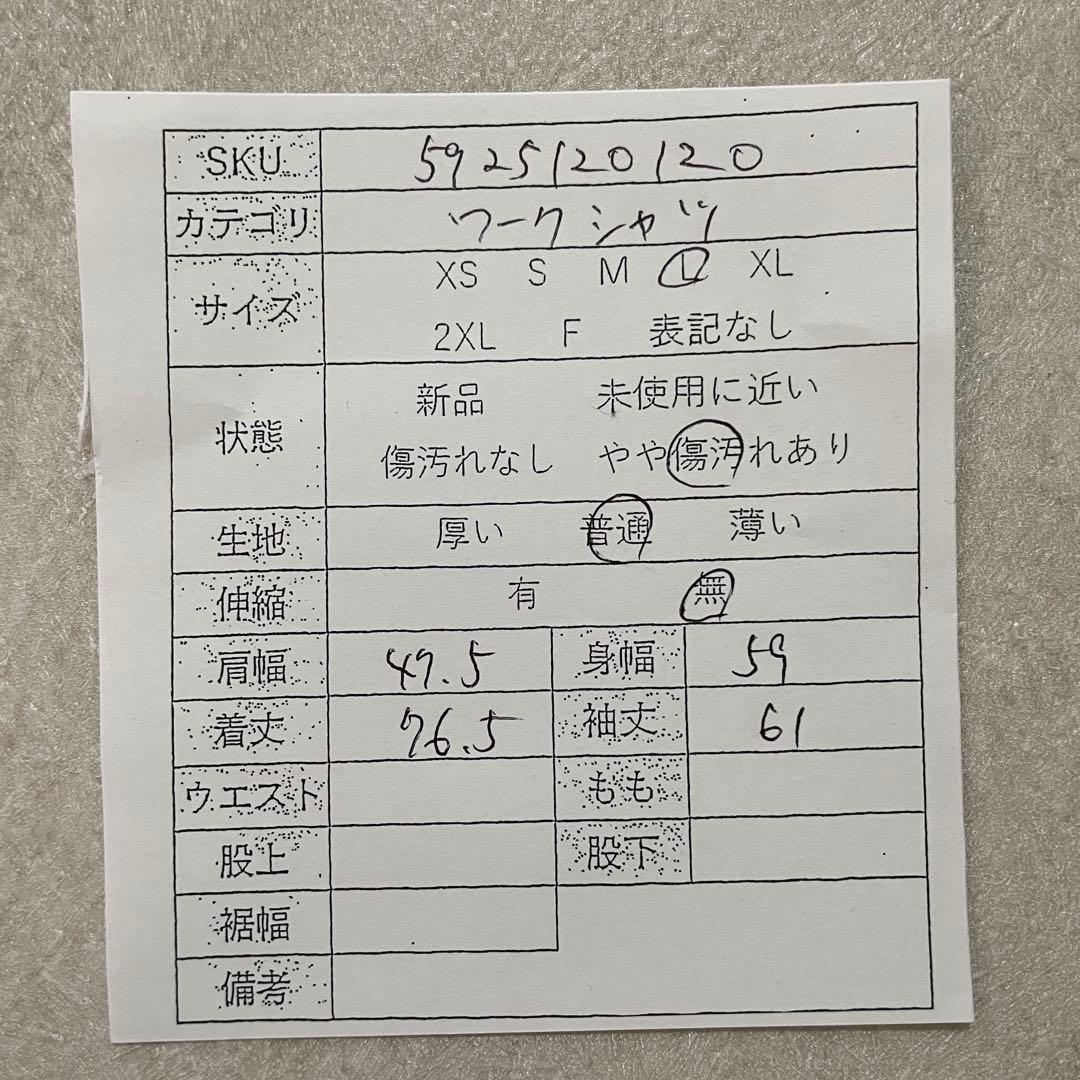 SKU 5925120120
カテゴリ ワークシャツ
サイズ XS S M L XL
2XL F 表記なし
状態 新品 未使用に近い
傷汚れなし やや傷汚れあり
生地 厚い 普通 薄い
伸縮 有 無
肩幅 49.5 身幅 59
着丈 76.5 袖丈 61
ウエスト もも
股上 股下
裾幅
備考